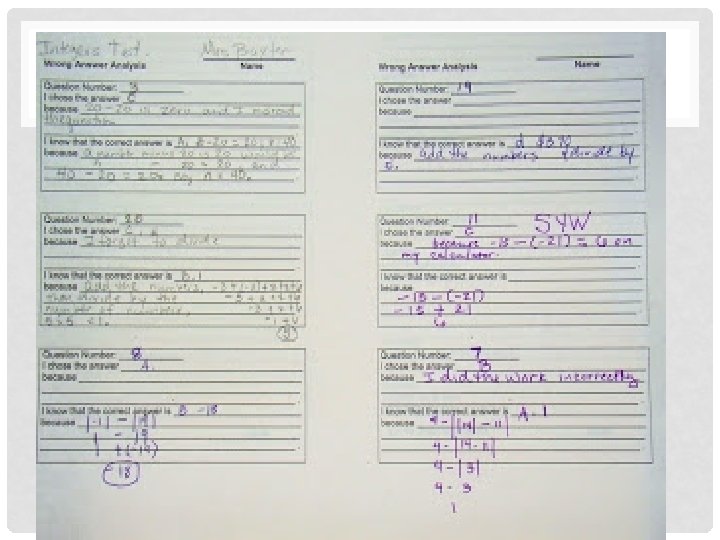 Integers Test. Mrs Baxter
Wrong Answer Analysis Name
Question Number: 3
I chose the answer C
because 20-20 is zero and I misread
the question.
I know that the correct answer is A.
because a number minus 20 is 20
40 - 20 = 20
Question Number: 20
I chose the answer C
because I forgot to divide
I know that the correct answer is B. 1
because add the numbers,
then divide by the
number of numbers.
5÷5 = 1.
Question Number: 8
I chose the answer A.
because
I know that the correct answer is B -18
because |-1| - |19|
1 - 19
1 +(-19)
-18
Wrong Answer Analysis Name
Question Number: 19
I chose the answer
because
I know that the correct answer is d $3.90
because add the numbers & divide by
5.
Question Number: 11
I chose the answer C
because because -15 - (-21) = 6 on
my calculator.
SYW
I know that the correct answer is
because
-15 - (-21)
-15 + 21
6
Question Number: 7
I chose the answer B
because I did the work incorrectly
I know that the correct answer is A. 1
because 4 - |14| - 11|
4 - |14 - 11|
4 - |3|
4 - 3
1